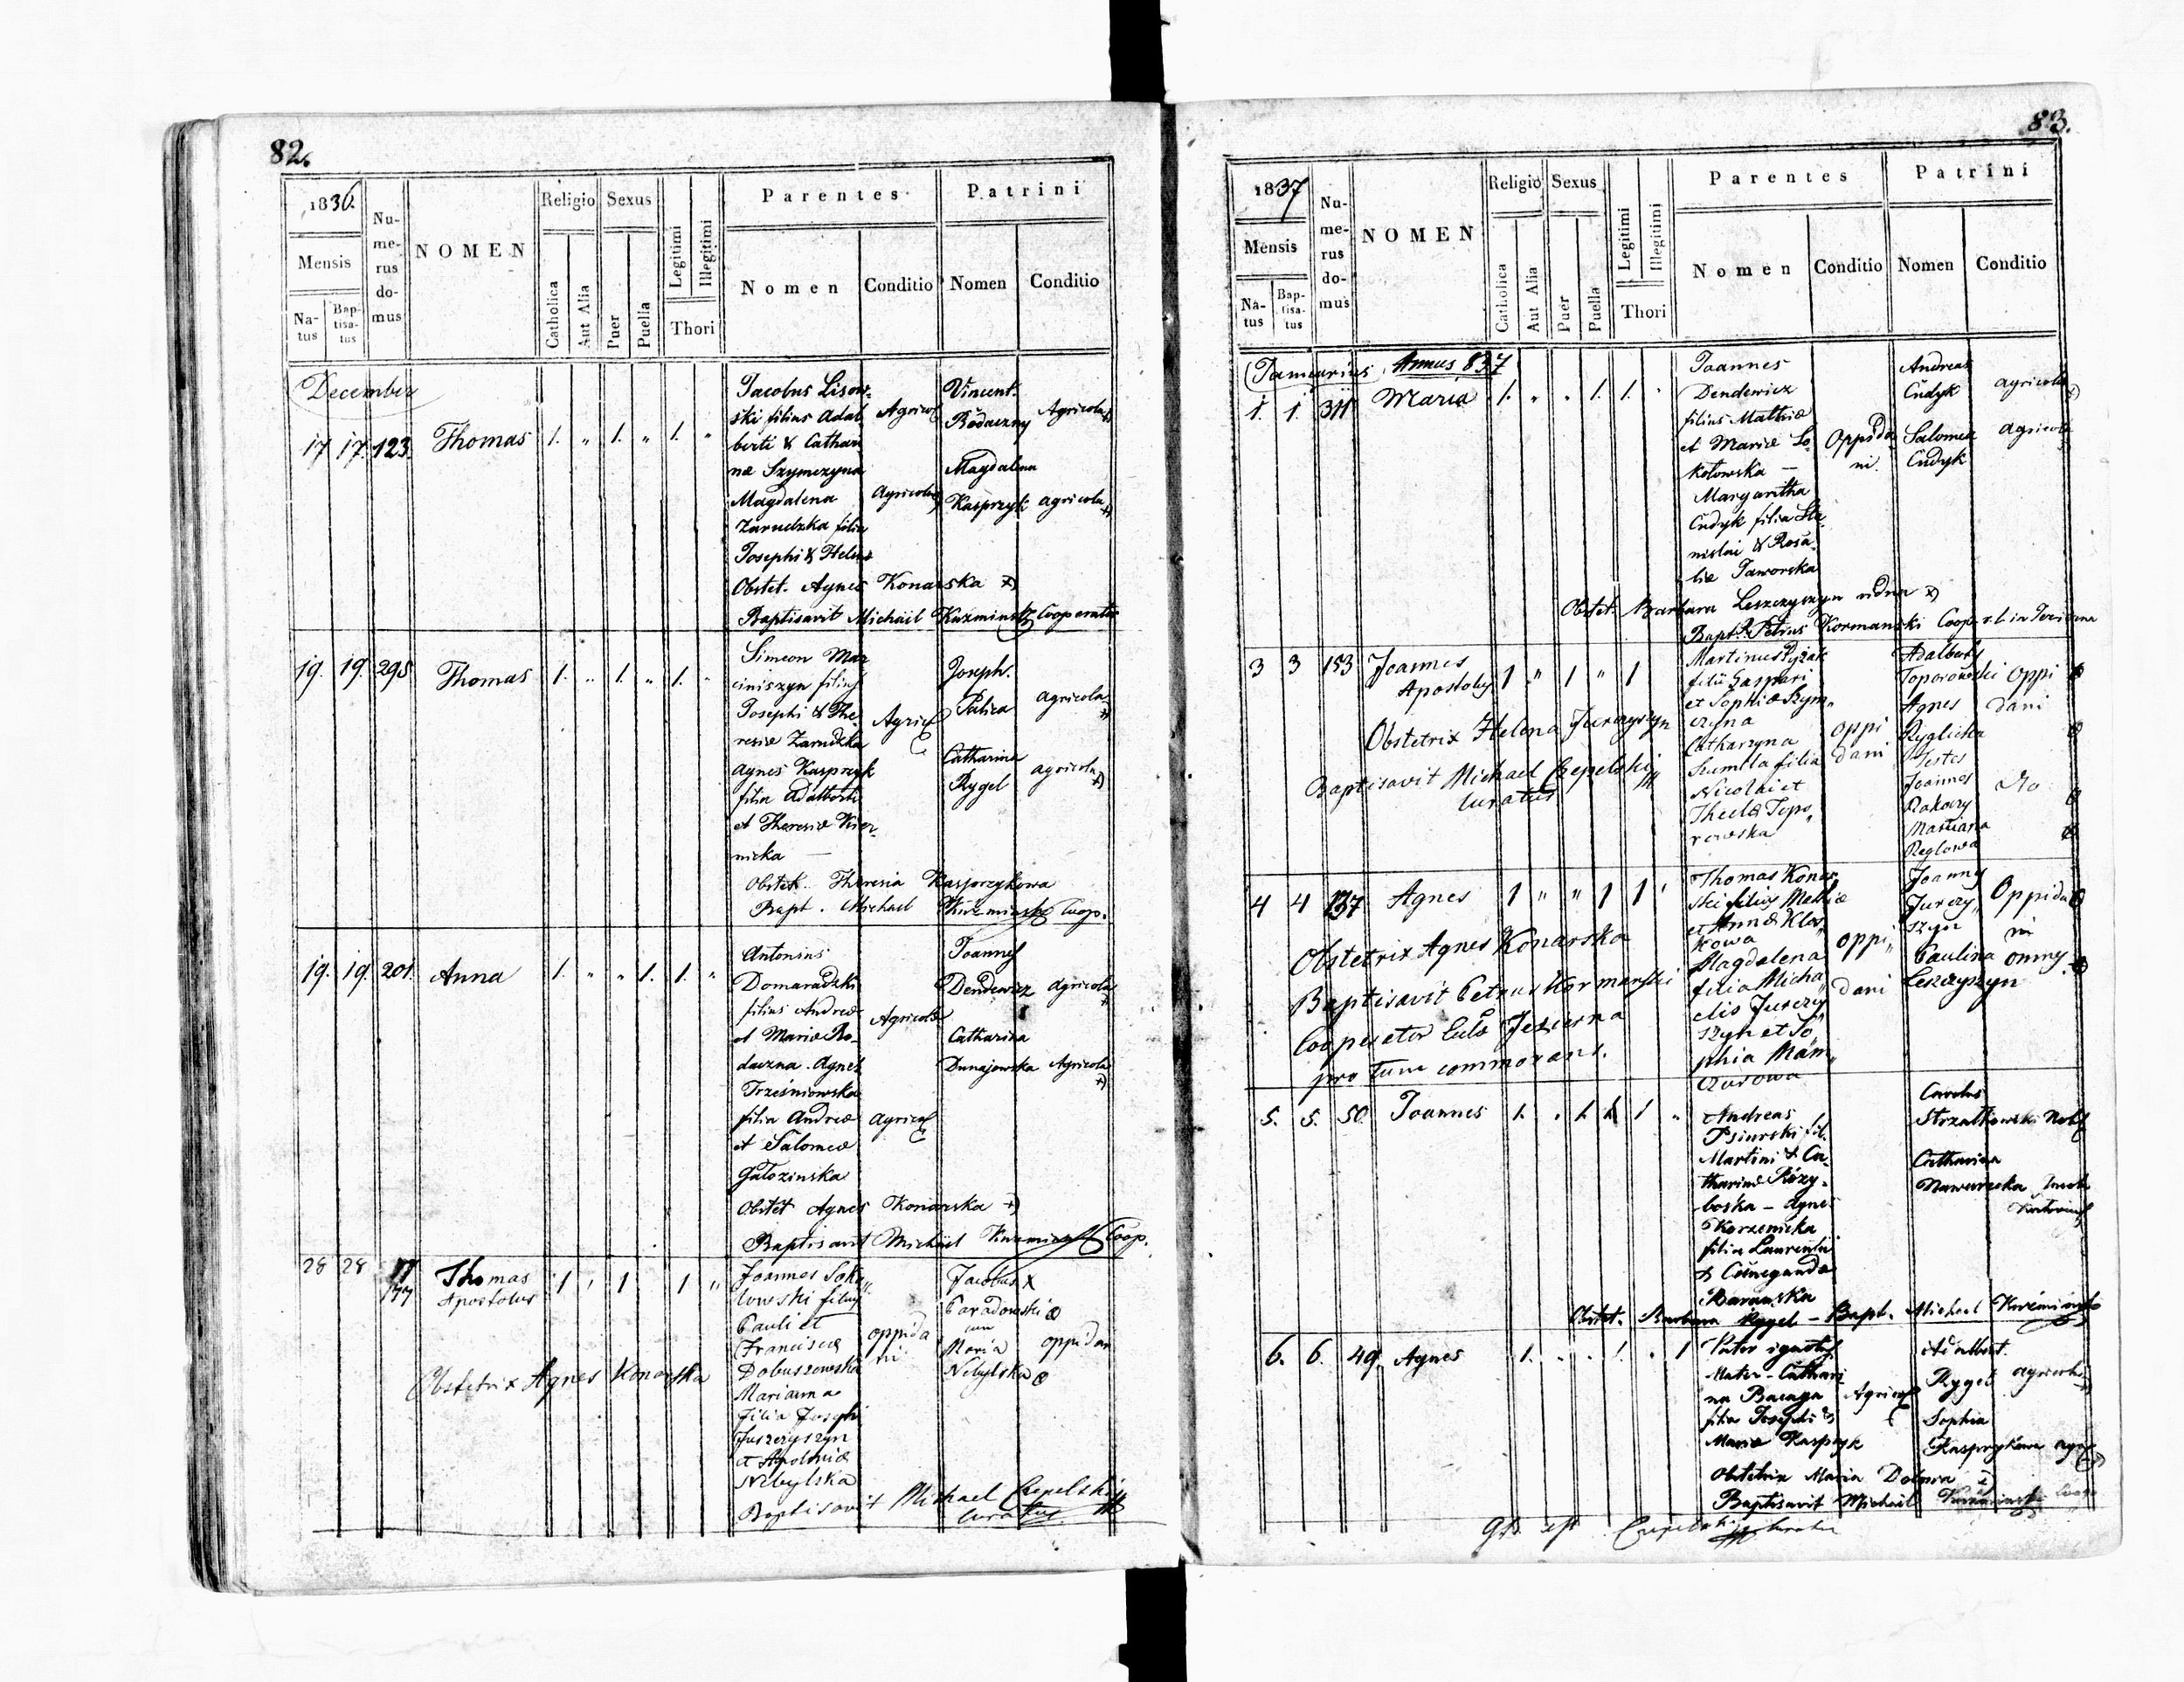 82.
1836.
Mensis
Na-
tus
Bap-
tisa-
tus
Nu-
me-
rus
do-
mus
NOMEN
Religio
Catholica
Aut Alia
Sexus
Puer
Puella
Legitimi
Illegitimi
Thori
Parentes
Nomen
Conditio
Patrini
Nomen
Conditio
December
17 17. 123. Thomas 1. „ 1. „ 1. „
Jacobus Lisow-
ski filius Adal
berti & Cathari
næ Szymczyna
Magdalena
Zarudzka filia
Josephi & Helenæ
Agricolæ
Vincent.
Bodaczny Agricola
Magdalena
Kasprzyk agricola
Obstet. Agnes Konarska
Baptisavit Michäil Kuzminski Cooperator
19. 19. 295 Thomas 1. „ 1. „ 1. „
Simeon Mar
ciniszyn filius
Josephi & The
resiæ Zarudzka
Agnes Kasprzyk
filia Adalberti
et Theresiæ Kier-
nicka —
Joseph.
Palica agricola
Catharina
Rygel agricola
Obstet. Theresia Kasprzykowa
Bapt. Michael Kuzminski Coop.
19. 19. 201. Anna 1. „ „ 1. 1. „
Antonius
Domaradzki
filius Andreæ
et Mariæ Bo-
daczna. Agnes
Trześniowska
filia Andreæ
et Salomeæ
Gałozinska
Agricolæ
Joannes
Dendewicz agricola
Catharina
Dunajowska Agricola
Obstet Agnes Konarska
Baptisavit Michäel Kuzminski Coop.
28 28 177 Thomas
Apostolus 1 „ 1 1 „
Joannes Soko„
lowski filius
Pauli et
Franciscæ
Dobuszowska
Marianna
filia Josephi
Juszczyszyn
et Apoloniæ
Nebylska
oppida
ni
Jacobus X
Paradowski
cum
Maria oppidan
Nebylska
Obstetrix Agnes Konarska
Baptisavit Michael Czepelski
Curatus
83.
1837
Mensis
Na-
tus
Bap-
tisa-
tus
Nu-
me-
rus
do-
mus
NOMEN
Religio
Catholica
Aut Alia
Sexus
Puer
Puella
Legitimi
Illegitimi
Thori
Parentes
Nomen
Conditio
Patrini
Nomen
Conditio
Januarius Annus 837
1. 1. 311 Maria 1. „ „ 1. 1. „
Joannes
Dendewicz
filius Mathiæ
et Mariæ So-
kołowska —
Margaritha
Cudyk filia Sta-
nislai & Rosa-
liæ Jaworska
Oppida
ni.
Andreas
Cudyk agricola
Salomea agricola
Cudyk
Obstet. Barbara Leszczyszyn vidua
Bapt. Petrus Kormanski Coop. r. l. in Jezierna
3 3 153 Joannes
Apostolus 1 „ 1 „ 1
Martinus Pyżak
filii Gaspari
et Sophiæ Szym„
czyna
Catharzyna
Szumlla filia
Nicolai et
Theclæ Topo„
rowska
oppi
dani
Adalbertus
Toporowski oppi
Agnes dani
Ryglicka
Testes
Joannes
Rakoczy
Marianna
Reglowa
Obstetrix Helena Jurczyszyn
Baptisavit Michael Czepelski
Curatus
4 4 137 Agnes 1 „ „ 1 1 „
Thomas Konar
ski filius Mathiæ
et Annæ Klos„
kowa
Magdalena
filia Micha
elis Jurczy
szyn et So
phia Mam„
czurowa
oppi„
dani
Joannes
Jurczy„ Oppida
szyn ni
Paulina omnes
Leszczyszyn
Obstetrix Agnes Konarska
Baptisavit Petrus Kormanski
Cooperator Eccles Jezierna
pro tunc commorans.
5. 5. 50. Joannes 1. „ 1. 1 „
Andreas
Psiurski fil.
Martini & Ca-
tharinæ Rózy-
boska – Agnes
Korzenicka
filia Laurentii
& Cunegundæ
Baranska
Carolus
Strzałkowski Nobl
Catharina
Nawarecka
Obstet. Barbara Rygel – Bapt. Michael Kuzminski
6. 6. 49. Agnes 1. „ „ 1. „ 1
Pater ignotus
Mater – Cathari
na Bacaga
filia Josephi &
Mariæ Kasprzyk
Agricolæ
Adalbert.
Rygel agricola
Sophia
Kasprzykowa agric
Obstetrix Maria Dolowa
Baptisavit Michäil Kuzminski Coop.
Czepelski Curatus